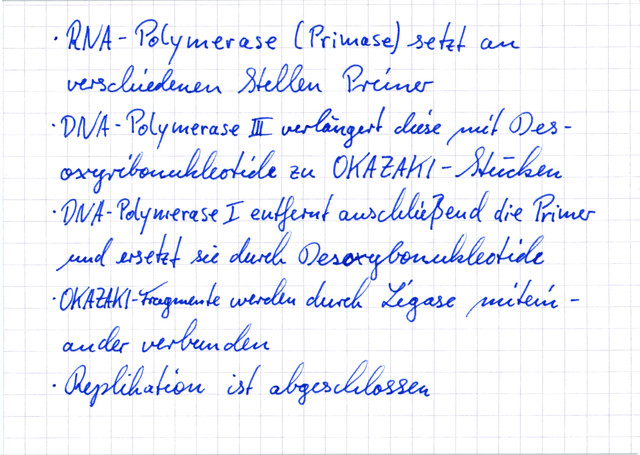 · RNA-Polymerase (Primase) setzt an
verschiedenen Stellen Primer
· DNA-Polymerase III verlängert diese mit Des-
oxyribonukleotide zu OKAZAKI-Stücken
· DNA-Polymerase I entfernt anschließend die Primer
und ersetzt sie durch Desoxybonukleotide
· OKAZAKI-Fragmente werden durch Ligase mitein-
ander verbunden
· Replikation ist abgeschlossen